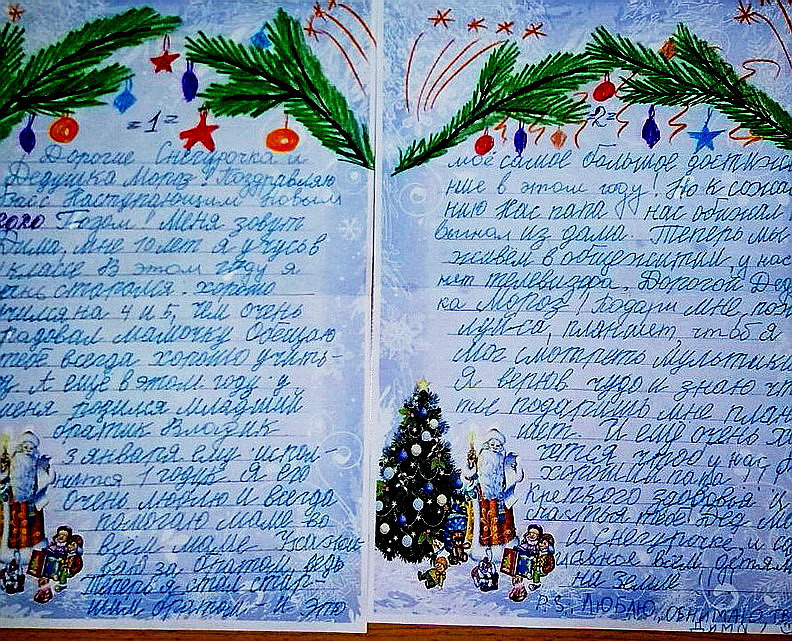 =1=
Дорогие Снегурочка и
Дедушка Мороз! Поздравляю
Вас с Наступающим Новым
Годом! Меня зовут
Дима, мне 10 лет я учусь в
классе. В этом году я
очень старался. хорошо
учился на 4 и 5, чем очень
радовал мамочку. Обещаю
тебе всегда хорошо учить-
А ещё в этом году у
меня родился младший
братик Владик
3 января ему испол-
нится 1 годик. Я его
очень люблю и всегда
помогаю маме во
всём маме. Ухажи-
ваю за братом, ведь
теперь я стал стар-
шим братом - и это
=2=
моё самое большое достиже
ние в этом году! Но к сожа
нию нас папа нас обижал
выгнал из дома. Теперь мы
живем в общежитии, у нас
нет телевизора. Дорогой Дед
ка Мороз! Подари мне, пож
луйса, планшет, чтобы я
мог смотреть мультики
Я верю в чудо и знаю чт
ты подаришь мне план
шет. И ещё очень х
чется чтоб у нас был
хороший папа
крепкого здоровья и
счастья тебе Дед Мо
и Снегурочке, и са
главное всем детям
на земле
P.S. Люблю, обнимаю, тв
Дима